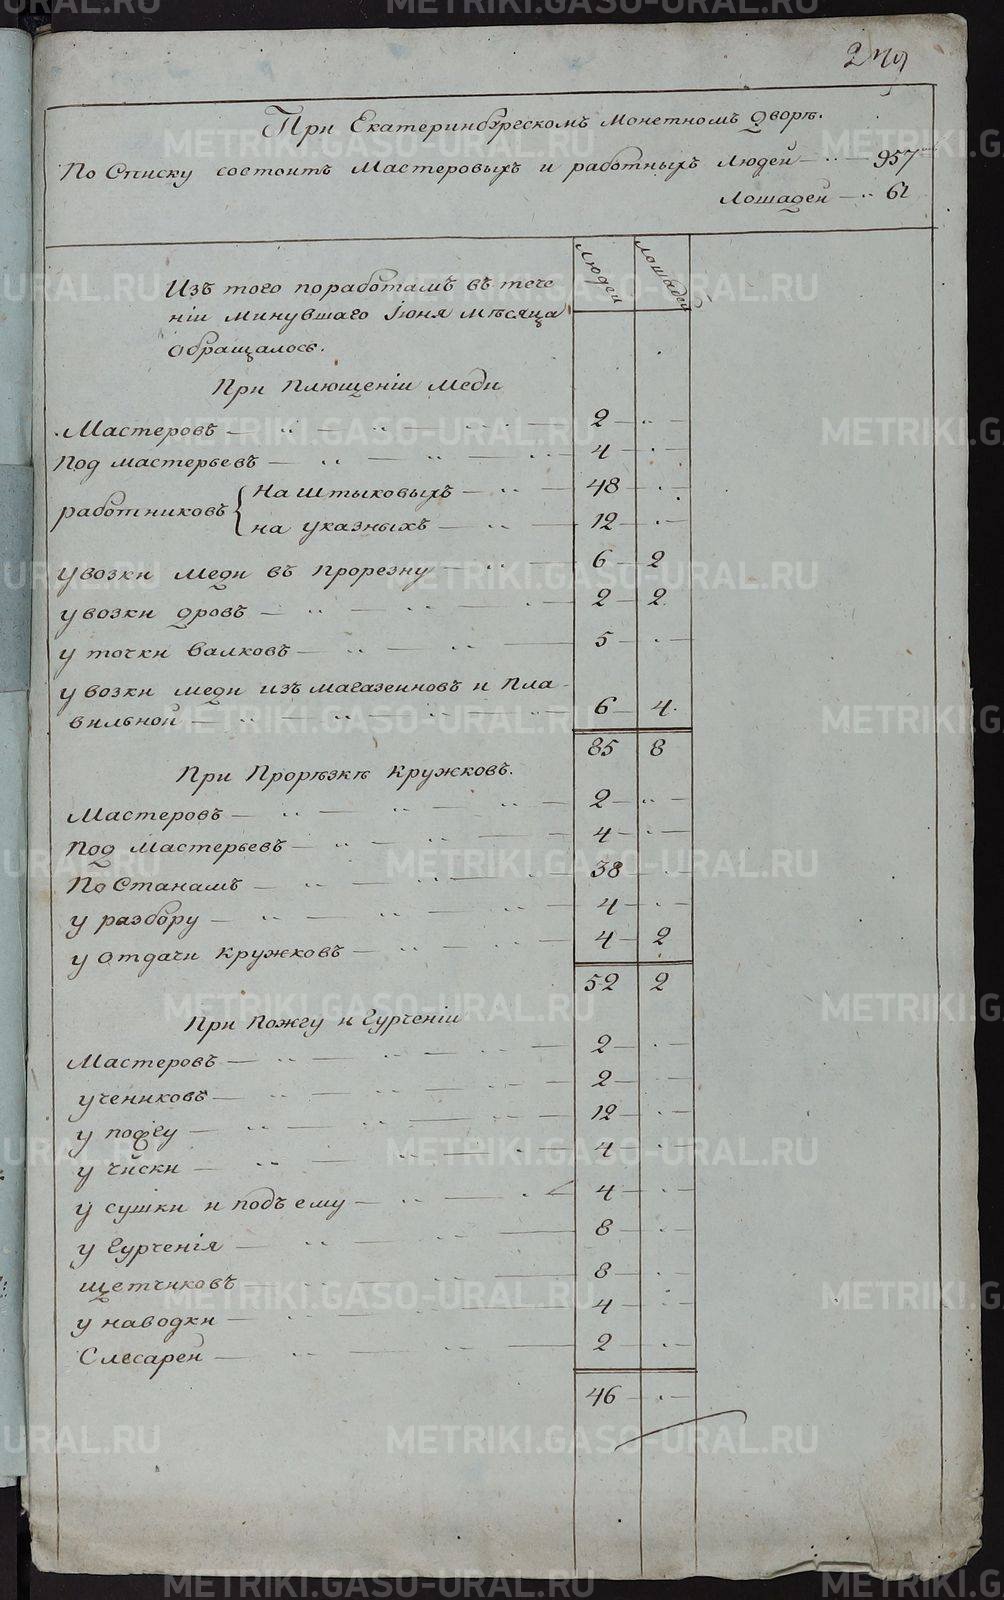 279
При Екатеринбургскомъ Монетномъ Дворѣ.
По Списку состоитъ Мастеровыхъ и работныхъ Людей — 957
Лошадей — 62
людей лошадей
Изъ того поработамъ въ тече
ніи минувшаго Іюня мѣсяца
обращалось.
При Плющеніи меди
Мастеровъ — 2
Под мастерьевъ — 4
работниковъ { На штыковыхъ — 48
на указныхъ — 12
у возки меди въ прорезну — 6 — 2
у возки дровъ — 2 — 2
у точки валковъ — 5
у возки меди изъ магазеиновъ и Пла
вильной — 6 — 4
85 8
При Прорѣзкѣ кружковъ.
Мастеровъ — 2
Под Мастерьевъ — 4
По Станамъ — 38
у разбору — 4
у отдачи кружковъ — 4 — 2
52 2
При Пожегу и Гурченіи
Мастеровъ — 2
учениковъ — 2
у пожегу — 12
у чиски — 4
у сушки и подъему — 4
у Гурченія — 8
щетчиковъ — 8
у наводки — 4
Слесарей — 2
46
METRIKI.GASO-URAL.RU